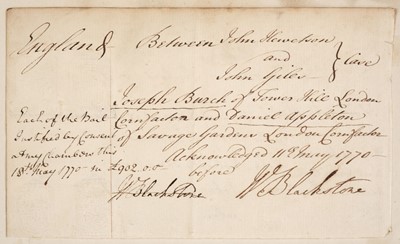 England
Between John Hewetson
and } Case
John Giles
Joseph Burch of Tower Hill London
Cornfactor and Daniel Appleton
of Savage Gardens London Cornfactor
Acknowledged 11th May 1770
before
Wm Blackstone
Each of the Bail
Justified by Consent
at my Chambers this
18th May 1770 in £902.0.0
Wm Blackstone